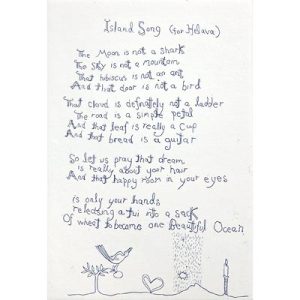 Island Song (for Helava)
The Moon is not a shark
The Sky is not a mountain
That hibiscus is not an ant
And that door is not a bird
That cloud is definately not a ladder
The road is a simple petal
And that leaf is really a cup
And that bread is a guitar
So let us pray that dream
is really about your hair
And that happy room in your eyes
is only your hands
releasing a tui into a sack
Of wheat to become one Beautiful Ocean